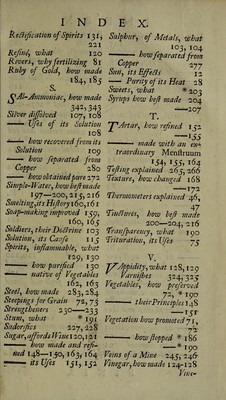 INDEX.
Rectification of Spirits 131,
221
Refine, what 120
Revers, why fertilizing 81
Ruby of Gold, how made
184, 185
S.
SAl-Ammoniac, how made
342, 343
Silver dissolved 107, 108
—— Uses of its Solution
108
—— how recovered from its
Solution 109
—— how separated from
Copper 280
—— how obtained pure 272
Simple-Water, how best made
197—200, 215, 216
Smelting, its History 160, 161
Soap-making improved 159,
160, 161
Soldiers, their Doctrine 103
Solution, its Cause 115
Spirits, inflammable, what
129, 130
—— how purified 130
—— native of Vegetables
162, 163
Steel, how made 283, 284
Steepings for Grain 72, 73
Strengtheners 230—233
Stum, what * 191
Sudorifics 227, 228
Sugar, affords Wine 120, 121
—— how made and refi-
ned 148—150, 163, 164
—— its Uses 151, 152
Sulphur, of Metals, what
103, 104
—— how separated from
Copper 277
Sun, its Effects 12
—— Purity of its Heat 28
Sweets, what * 203
Syrups how best made 204
—207
T.
TArtar, how refined 152
—155
—— made with an ex-
traordinary Menstruum
154, 155, 164
Testing explained 265, 266
Texture, how changed 168
—172
Thermometers explained 46,
47
Tinctures, how best made
200—204, 216
Transparency, what 190
Trituration, its Uses 75
V.
VAppidity, what 128, 129
Varnishes 324, 325
Vegetables, how preserved
72, * 190
—— their Principles 148
—151
Vegetation how promoted 71,
72
—— how stopped * 186
—* 190
Veins of a Mine 245, 246
Vinegar, how made 124-128
Vine-